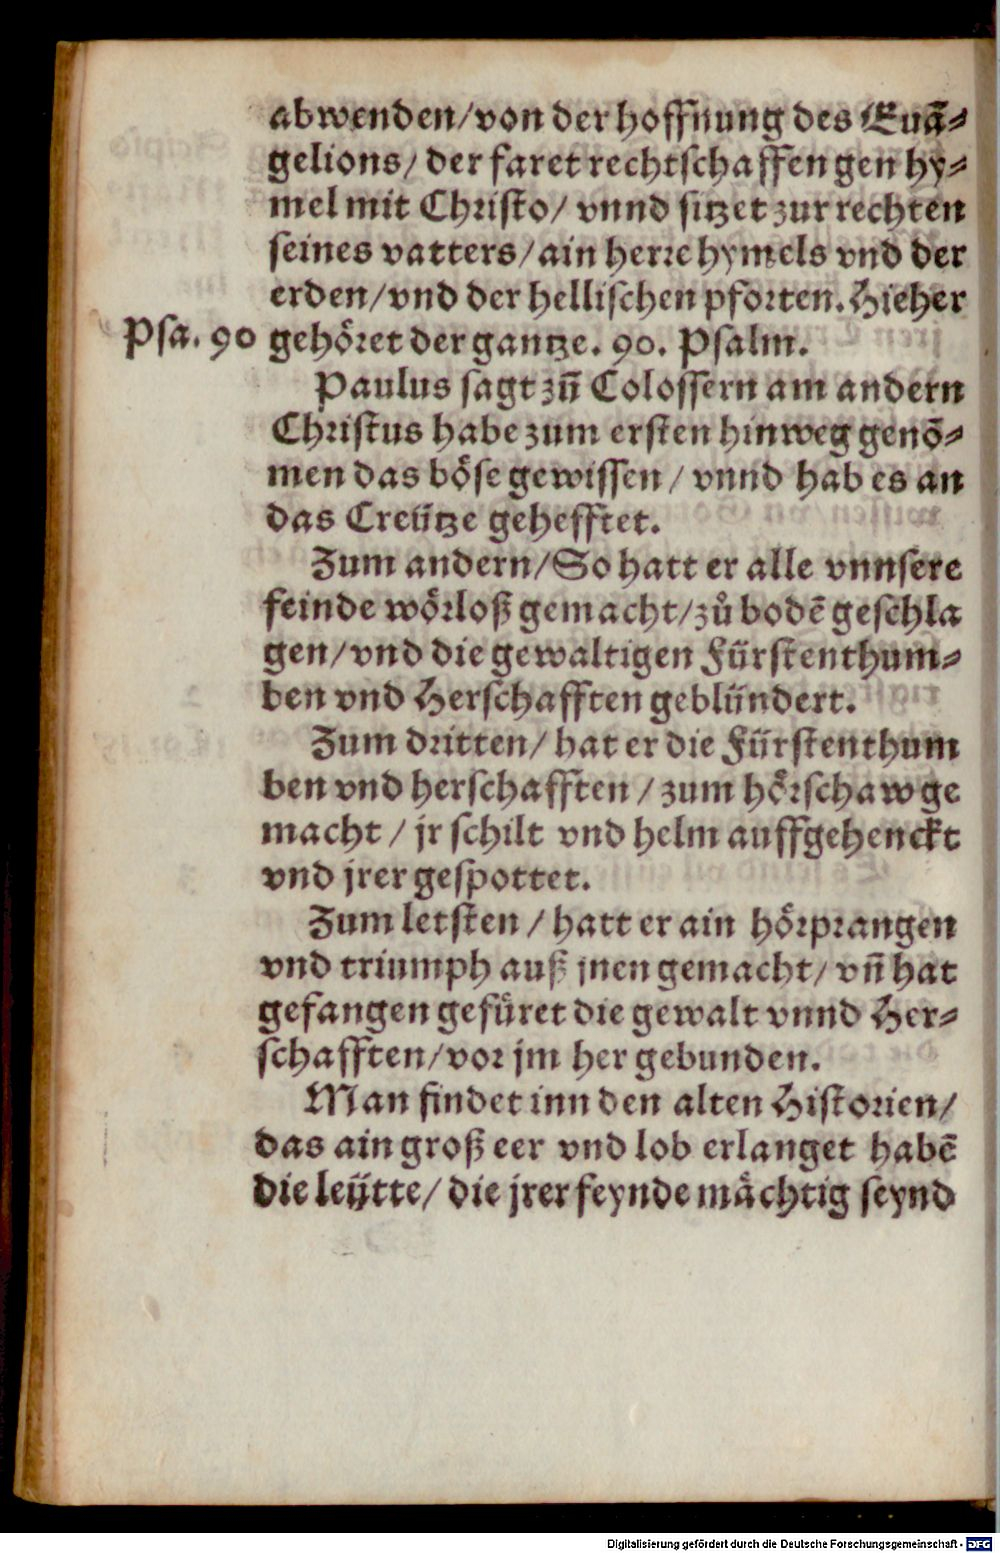 abwenden/von der hoffnung des Euã⸗
gelions/ der faret rechtschaffen gen hy⸗
mel mit Christo/ vnnd sitzet zur rechten
seines vatters/ain herre hymels vnd der
erden/vnd der hellischen pforten. Hieher
Psa. 90 gehöret der gantze. 90. Psalm.
Paulus sagt zuñ Colossern am andern
Christus habe zum ersten hinweg genõ⸗
men das böse gewissen/ vnnd hab es an
das Creütze gehefftet.
Zum andern/So hatt er alle vnnsere
feinde wörloß gemacht/zů bodẽ geschla
gen/vnd die gewaltigen Fürstenthum⸗
ben vnd Herschafften geblündert.
Zum dritten/ hat er die Fürstenthum
ben vnd herschafften/ zum hörschaw ge
macht/ jr schilt vnd helm auffgehenckt
vnd jrer gespottet.
Zum letsten/ hatt er ain hörprangen
vnd triumph auß jnen gemacht/ vñ hat
gefangen gefüret die gewalt vnnd Her⸗
schafften/vor jm her gebunden.
Man findet inn den alten Historien/
das ain groß eer vnd lob erlanget habẽ
die leütte/ die jrer feynde mächtig seynd
Digitalisierung gefördert durch die Deutsche Forschungsgemeinschaft - DFG